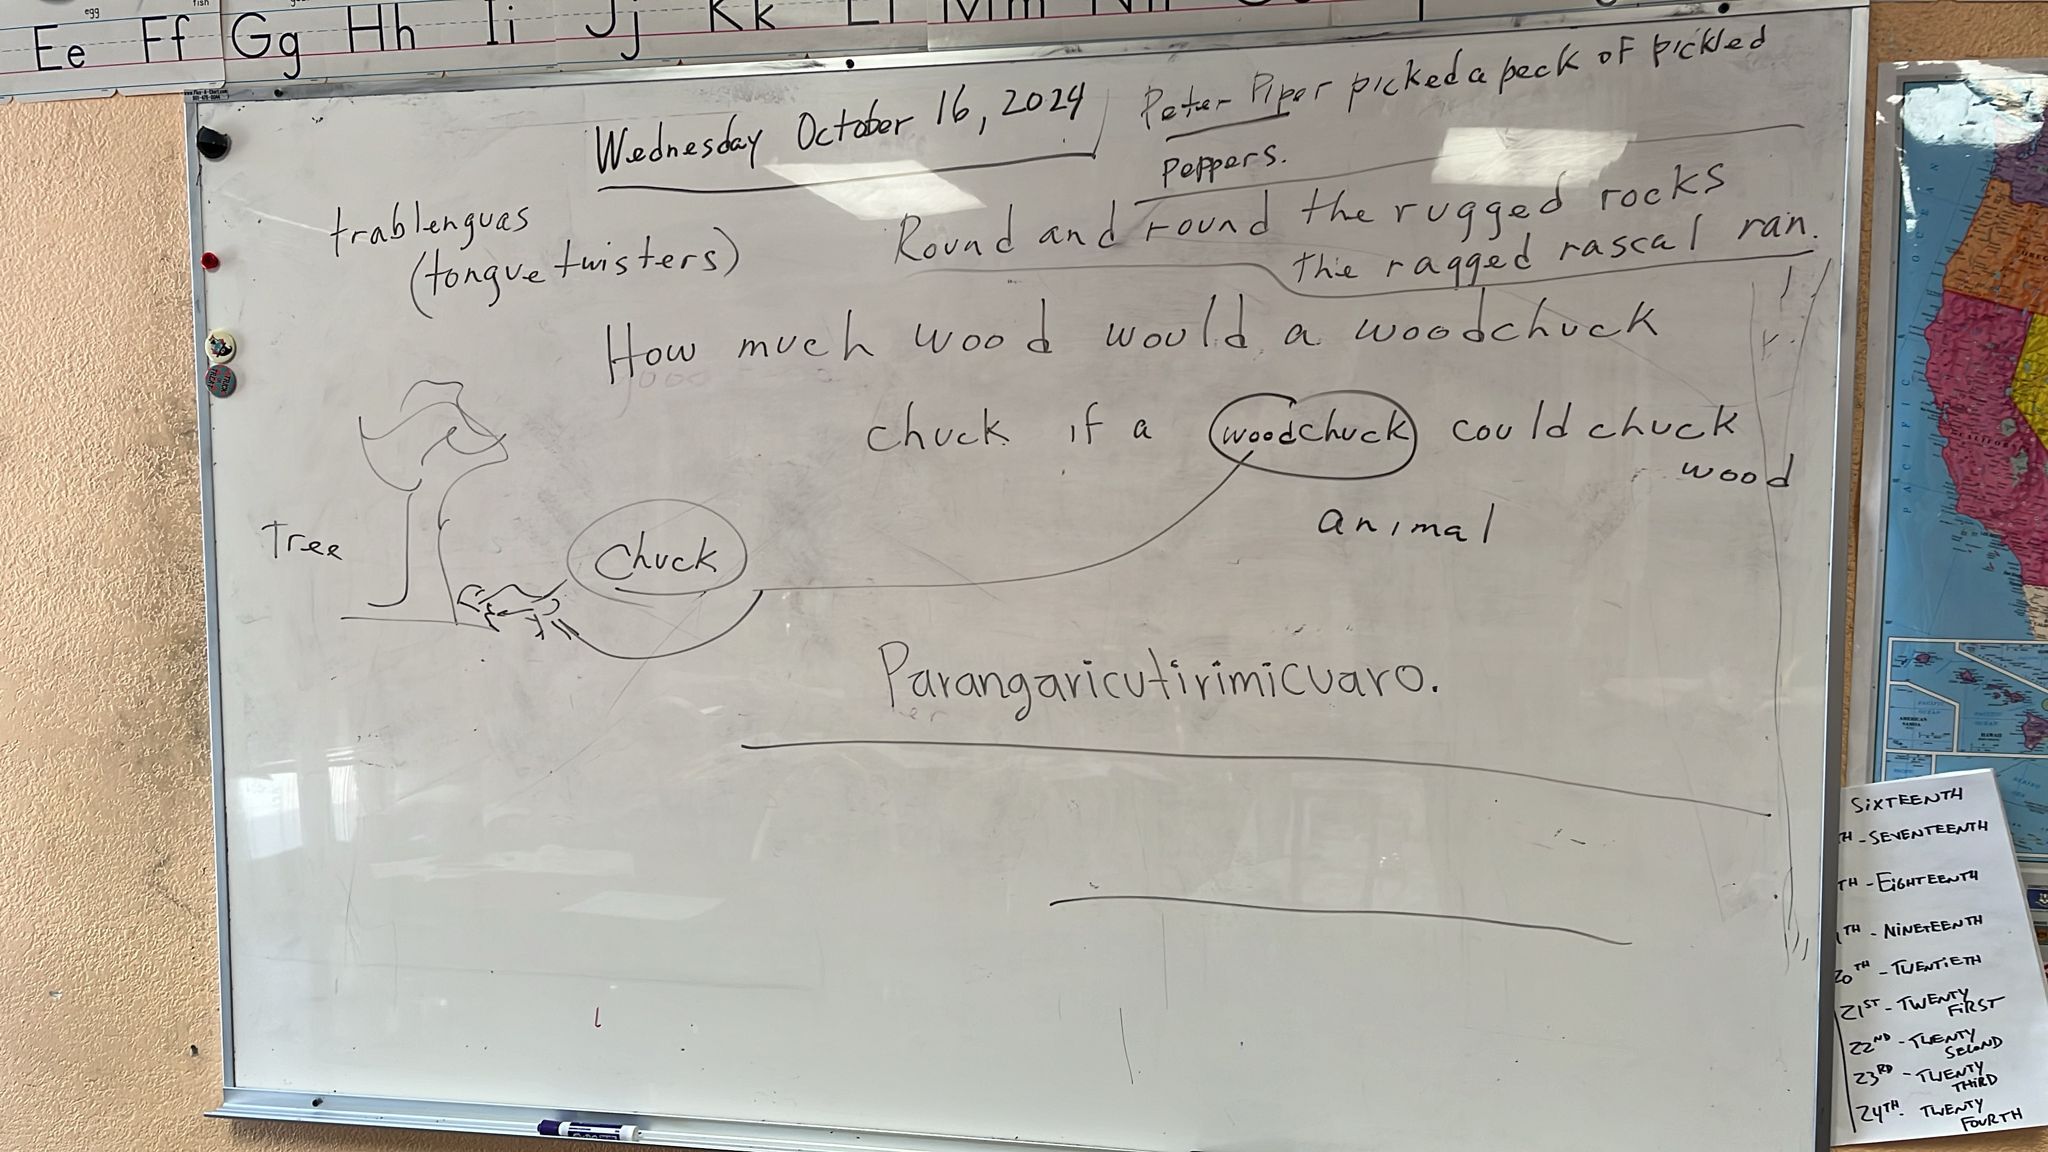 egg
fish
Ee Ff Gg Hh Ii Jj Kk
Wednesday October 16, 2024
Peter Piper picked a peck of pickled
peppers.
trablenguas
(tongue twisters)
Round and round the rugged rocks
the ragged rascal ran.
How much wood would a woodchuck
chuck if a woodchuck could chuck
wood
animal
Tree
Chuck
Parangaricutirimicuaro.
PACIFIC OCEAN
CALIFORNIA
AMERICAN SAMOA
HAWAII
SIXTEENTH
TH - SEVENTEENTH
TH - EIGHTEENTH
TH - NINETEENTH
20TH - TWENTIETH
21ST - TWENTY
FIRST
22ND - TWENTY
SECOND
23RD - TWENTY
THIRD
24TH - TWENTY
FOURTH